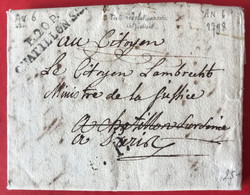 An 6
AN 6
1798
P.20.P.
CHATILLON S. S.
au Citoyen
Le Citoyen Lambrechts
Ministre de la Justice
a chatillon sur Seine
a Paris
25